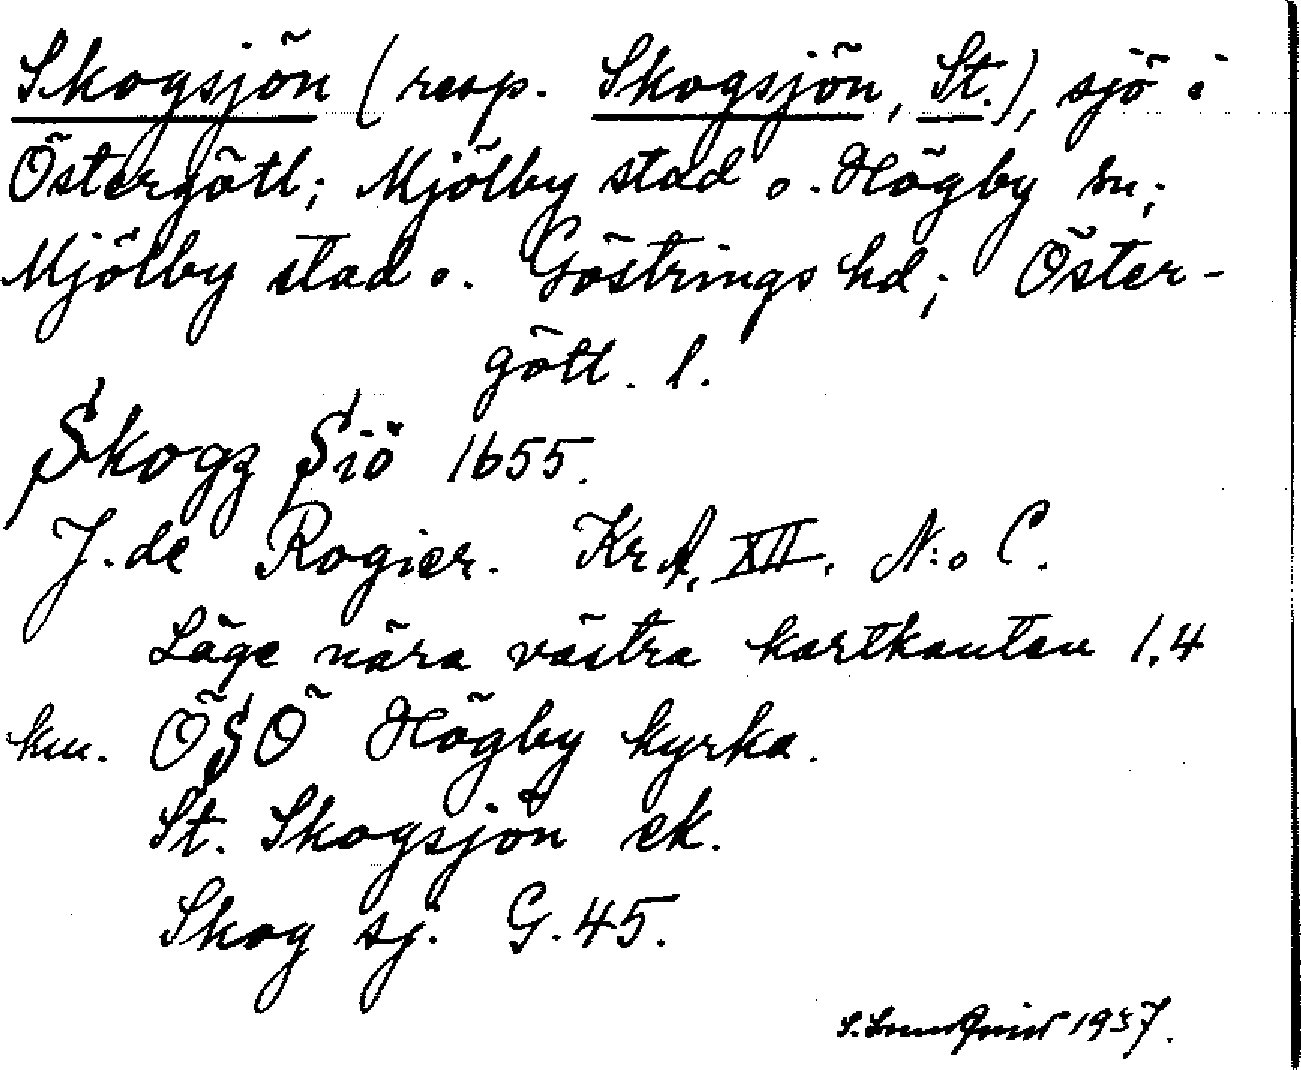 Skogsjön (resp. Skogsjön, St.), sjö i
Östergötl; Mjölby stad o. Högby sn;
Mjölby stad o. Göstrings hd; Öster-
götl. l.
Skogz Siö 1655.
J. de Rogier. KrA, XII, N:o C.
Läge nära västra kartkanten 1,4
km. ÖSÖ Högby kyrka.
St. Skogsjön ek.
Skog sj. G. 45.
S. 1937.